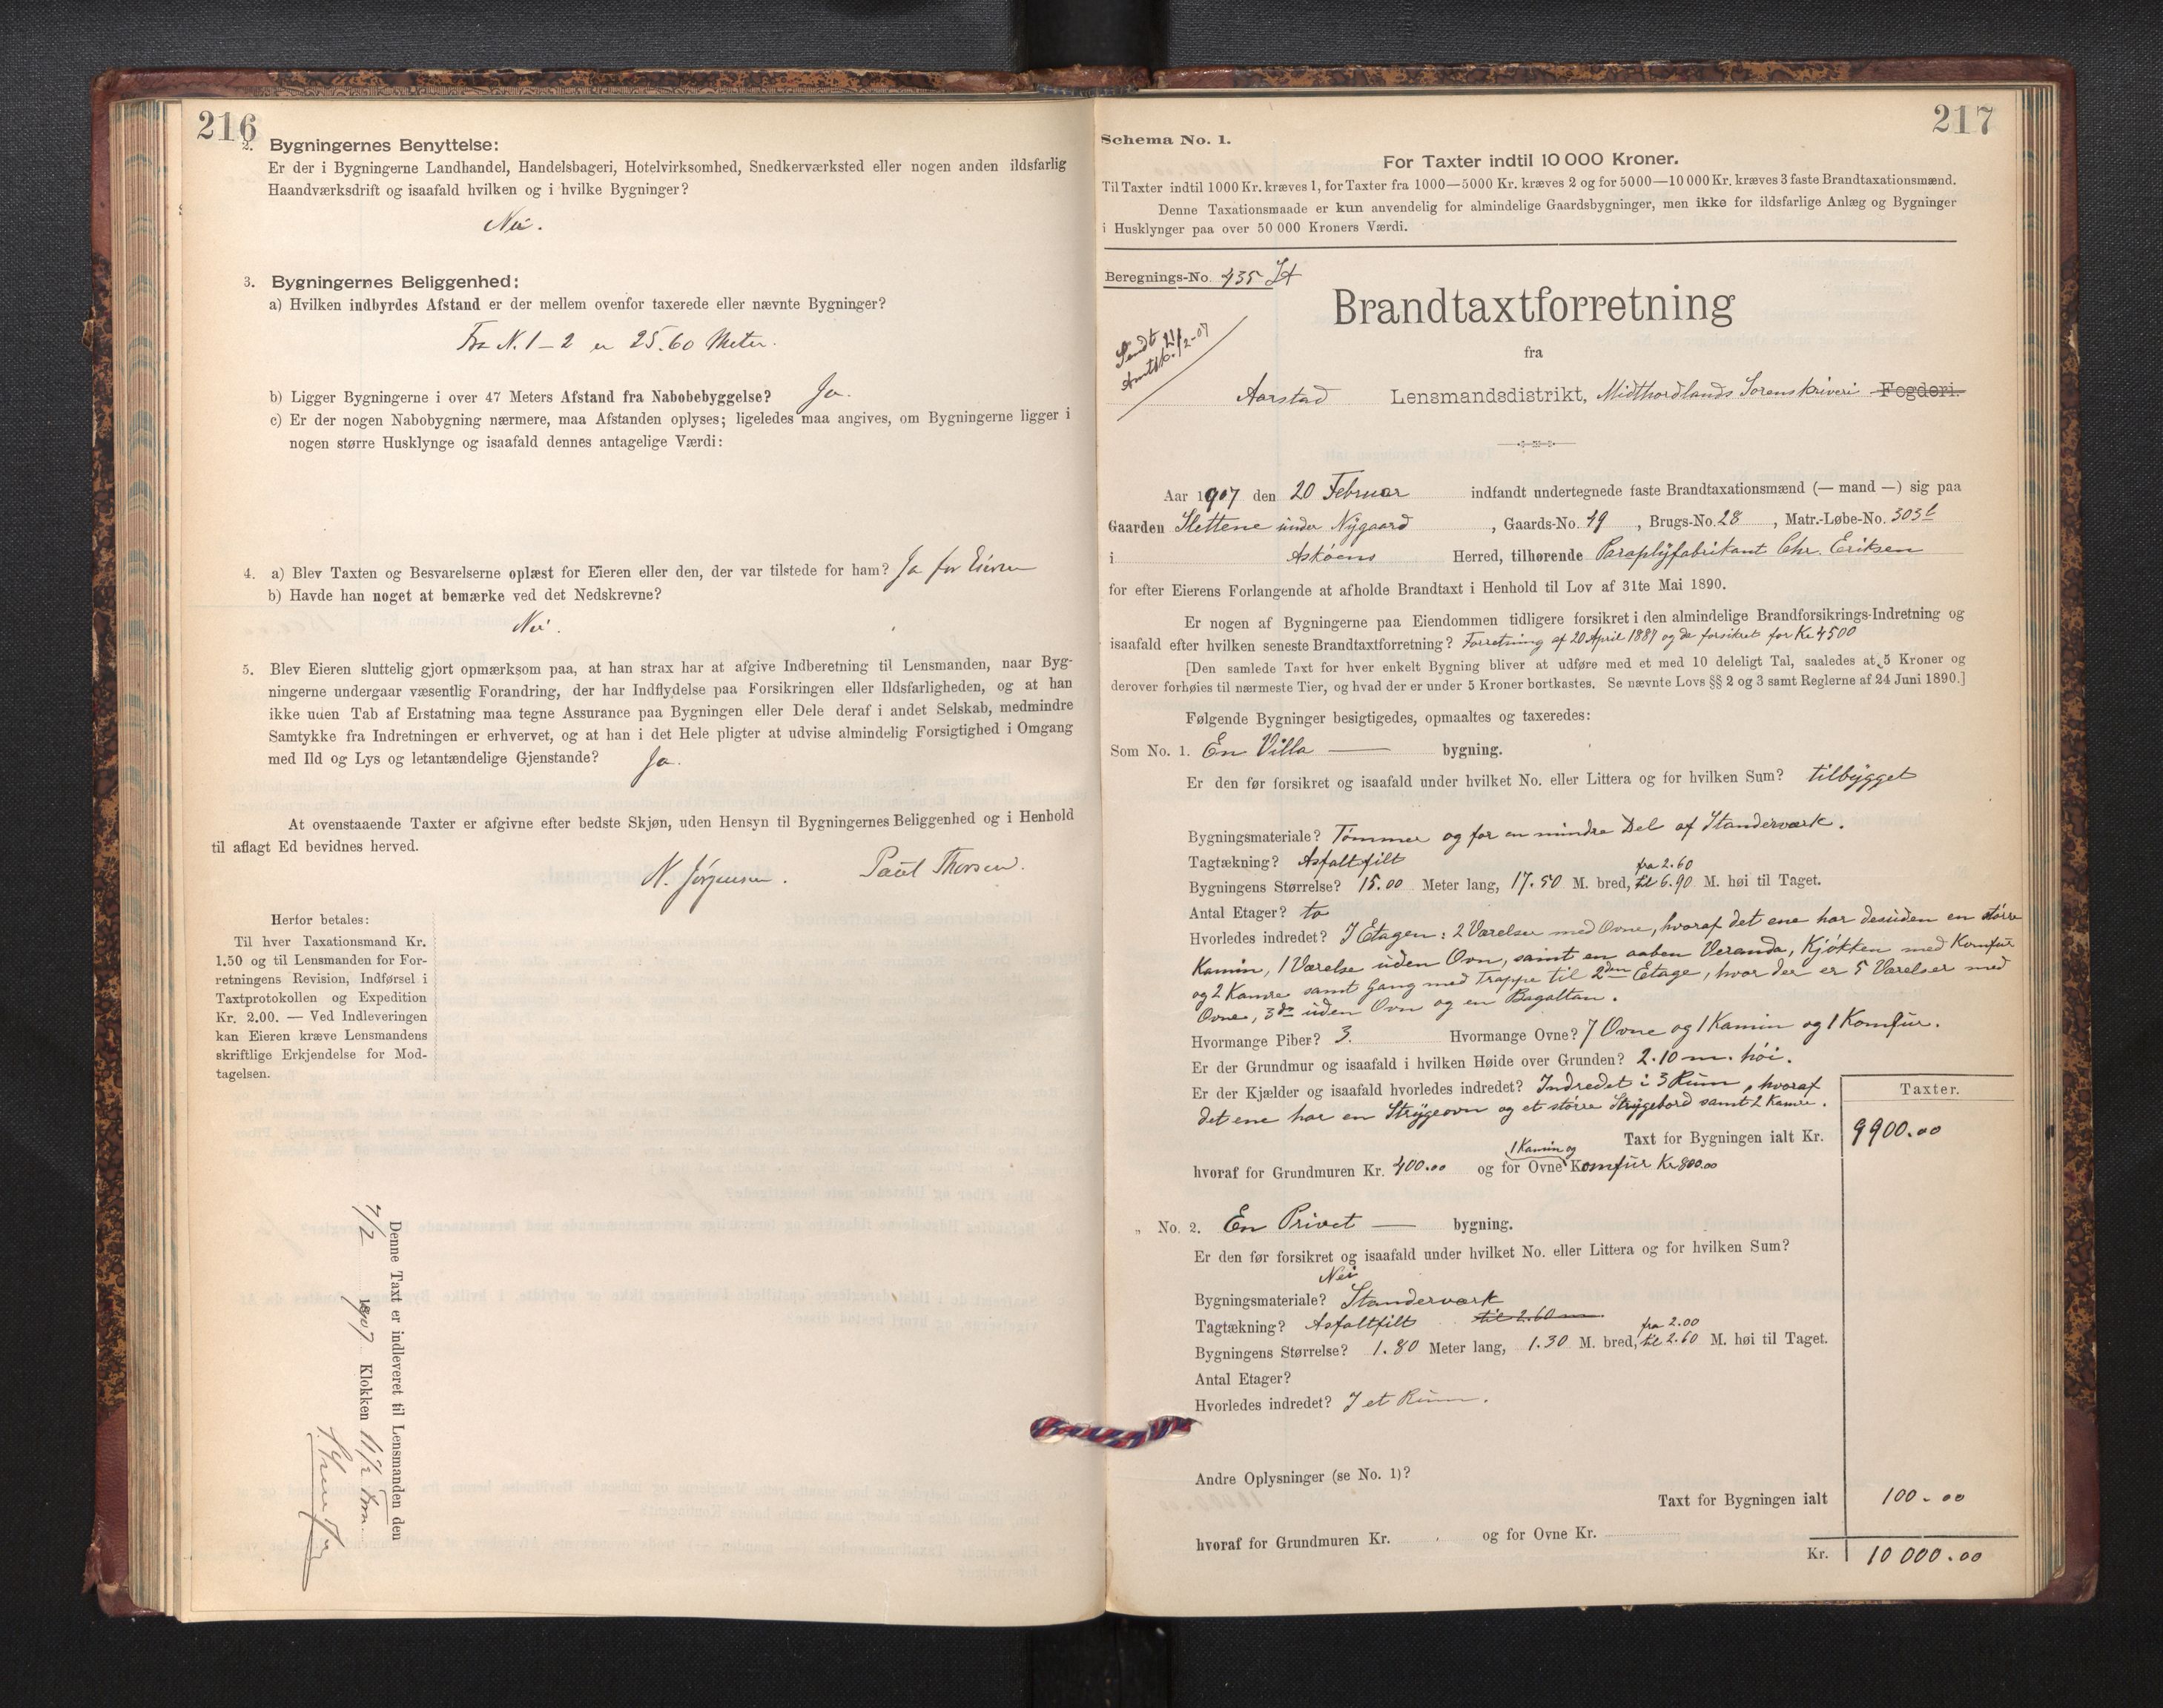 216
2. Bygningernes Benyttelse:
Er der i Bygningerne Landhandel, Handelsbageri, Hotelvirksomhed, Snedkerværksted eller nogen anden ildsfarlig
Haandværksdrift og isaafald hvilken og i hvilke Bygninger?
Nei.
3. Bygningernes Beliggenhed:
a) Hvilken indbyrdes Afstand er der mellem ovenfor taxerede eller nævnte Bygninger?
Fra N. 1 – 2 er 25.60 Meter.
b) Ligger Bygningerne i over 47 Meters Afstand fra Nabobebyggelse? Ja.
c) Er der nogen Nabobygning nærmere, maa Afstanden oplyses; ligeledes maa angives, om Bygningerne ligger i
nogen større Husklynge og isaafald dennes antagelige Værdi:
4. a) Blev Taxten og Besvarelserne oplæst for Eieren eller den, der var tilstede for ham? Ja for Eieren
b) Havde han noget at bemærke ved det Nedskrevne?
Nei.
5. Blev Eieren sluttelig gjort opmærksom paa, at han strax har at afgive Indberetning til Lensmanden, naar Byg-
ningerne undergaar væsentlig Forandring, der har Indflydelse paa Forsikringen eller Ildsfarligheden, og at han
ikke uden Tab af Erstatning maa tegne Assurance paa Bygningen eller Dele deraf i andet Selskab, medmindre
Samtykke fra Indretningen er erhvervet, og at han i det Hele pligter at udvise almindelig Forsigtighed i Omgang
med Ild og Lys og letantændelige Gjenstande? Ja.
At ovenstaaende Taxter er afgivne efter bedste Skjøn, uden Hensyn til Bygningernes Beliggenhed og i Henhold
til aflagt Ed bevidnes herved.
N. Jörgensen. Paul Thorsen.
Herfor betales:
Til hver Taxationsmand Kr.
1.50 og til Lensmanden for For-
retningens Revision, Indførsel i
Taxtprotokollen og Expedition
Kr. 2.00. — Ved Indleveringen
kan Eieren kræve Lensmandens
skriftlige Erkjendelse for Mod-
tagelsen.
Denne Taxt er indleveret til Lensmanden den
1907 Klokken 11 1/2 Fm.
217
Schema No. 1.
For Taxter indtil 10 000 Kroner.
Til Taxter indtil 1000 Kr. kræves 1, for Taxter fra 1000—5000 Kr. kræves 2 og for 5000—10 000 Kr. kræves 3 faste Brandtaxationsmænd.
Denne Taxationsmaade er kun anvendelig for almindelige Gaardsbygninger, men ikke for ildsfarlige Anlæg og Bygninger
i Husklynger paa over 50 000 Kroners Værdi.
Beregnings-No. 435
Brandtaxtforretning
Sendt 21/2-07
fra
Aarstad Lensmandsdistrikt, Midthordlands Sorenskriveri Fogderi.
Aar 1907 den 20 Februar indfandt undertegnede faste Brandtaxationsmænd (— mand —) sig paa
Gaarden Slettene under Nygaard, Gaards-No. 49, Brugs-No. 28, Matr.-Løbe-No. 303 l
i Askøens Herred, tilhørende Paraplyfabrikant Chr. Eriksen
for efter Eierens Forlangende at afholde Brandtaxt i Henhold til Lov af 31te Mai 1890.
Er nogen af Bygningerne paa Eiendommen tidligere forsikret i den almindelige Brandforsikrings-Indretning og
isaafald efter hvilken seneste Brandtaxtforretning? Forretning af 20 April 1887 og da forsikret for Kr 4500
[Den samlede Taxt for hver enkelt Bygning bliver at udføre med et med 10 deleligt Tal, saaledes at 5 Kroner og
derover forhøies til nærmeste Tier, og hvad der er under 5 Kroner bortkastes. Se nævnte Lovs §§ 2 og 3 samt Reglerne af 24 Juni 1890.]
Følgende Bygninger besigtigedes, opmaaltes og taxeredes:
Som No. 1. En Villa — bygning.
Er den før forsikret og isaafald under hvilket No. eller Littera og for hvilken Sum? tilbygget
Bygningsmateriale? Tømmer og for en mindre Del af Standerværk.
Tagtækning? Asfaltfilt
fra 2.60
Bygningens Størrelse? 15.00 Meter lang, 17.50 M. bred, til 6.90 M. høi til Taget.
Antal Etager? to
Hvorledes indredet? I Etagen: 2 Værelser med Ovne, hvoraf det ene har desuden en større
Kamin, 1 Værelse uden Ovn, samt en aaben Veranda, Kjøkken med Komfur
og 2 Kamre samt Gang med Trappe til 2den Etage, hvor der er 5 Værelser med
Ovne, 3 do uden Ovn og en Bagaltan.
Hvormange Piber? 3. Hvormange Ovne? 7 Ovne og 1 Kamin og 1 Komfur.
Er der Grundmur og isaafald i hvilken Høide over Grunden? 2.10 m. høi.
Er der Kjælder og isaafald hvorledes indredet? Indredet i 3 Rum, hvoraf
det ene har en Strygeovn og et større Strygebord samt 2 Kamre.
Taxter.
Taxt for Bygningen ialt Kr. 9900.00
1 Kamin og
hvoraf for Grundmuren Kr. 400.00 og for Ovne Komfur Kr 800.00
„ No. 2. En Privet — bygning.
Er den før forsikret og isaafald under hvilket No. eller Littera og for hvilken Sum?
Nei
Bygningsmateriale? Standerværk
Tagtækning? Asfaltfilt til 2.60 m
fra 2.00
Bygningens Størrelse? 1.80 Meter lang, 1.30 M. bred, til 2.60 M. høi til Taget.
Antal Etager?
Hvorledes indredet? I et Rum.
Andre Oplysninger (se No. 1)?
Taxt for Bygningen ialt 100.00
hvoraf for Grundmuren Kr. og for Ovne Kr.
Kr. 10 000.00